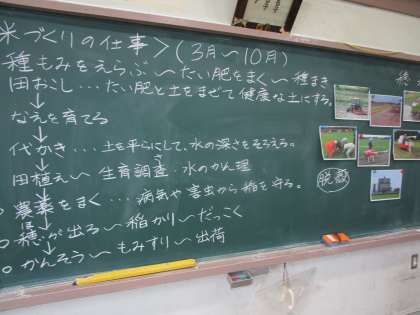 米づくりの仕事＞（3月〜10月）
種もみをえらぶ〜たい肥をまく〜種まき
田おこし…たい肥と土をまぜて健康な土にする。
↓
なえを育てる
↓
代かき…土を平らにして、水の深さをそろえる。
↓
田植え〜生育調査・水のかん理
↓
農薬をまく…病気や害虫から稲を守る。
↓
穂が出る〜稲かり〜だっこく
ほ
↓
かんそう〜もみすり〜出荷
脱穀